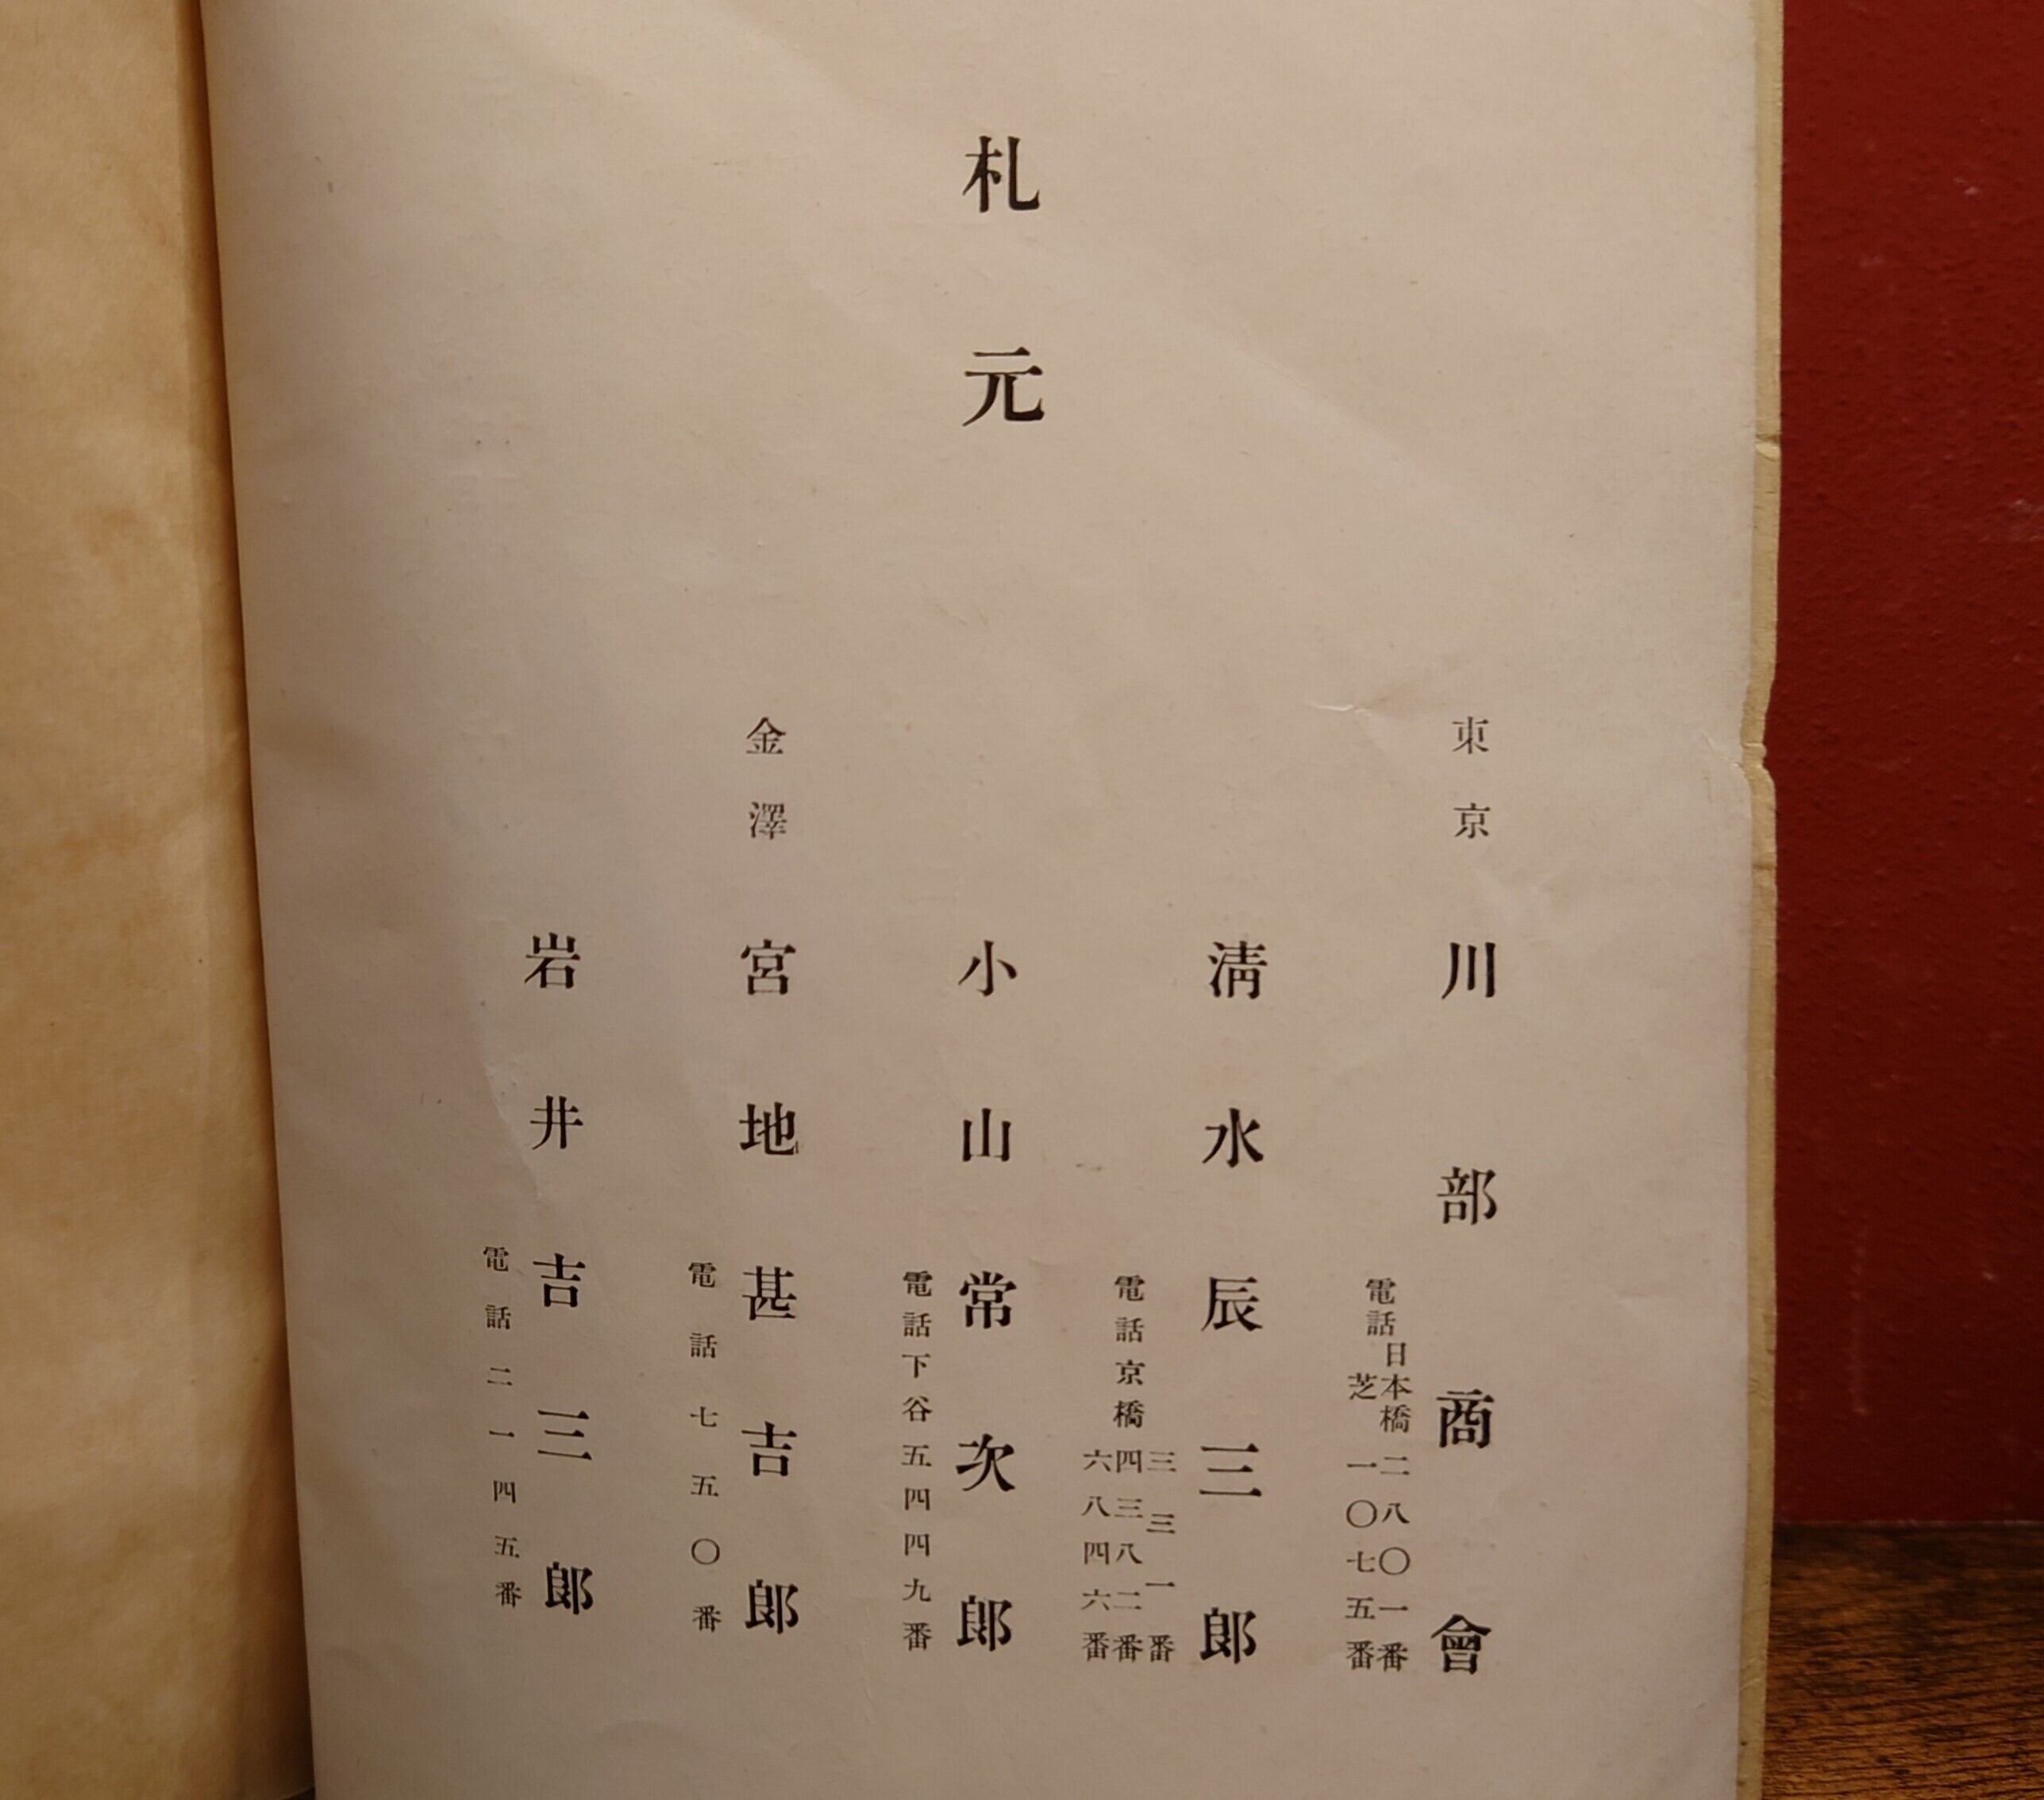 札元
東京
川部商會
電話
日本橋 二八〇一番
芝 一〇七五番
淸水辰三郎
電話京橋
三三一番
四三八二番
六八四六番
小山常次郎
電話下谷五四四九番
金澤
宮地甚吉郎
電話七五〇番
岩井吉三郎
電話二一四五番